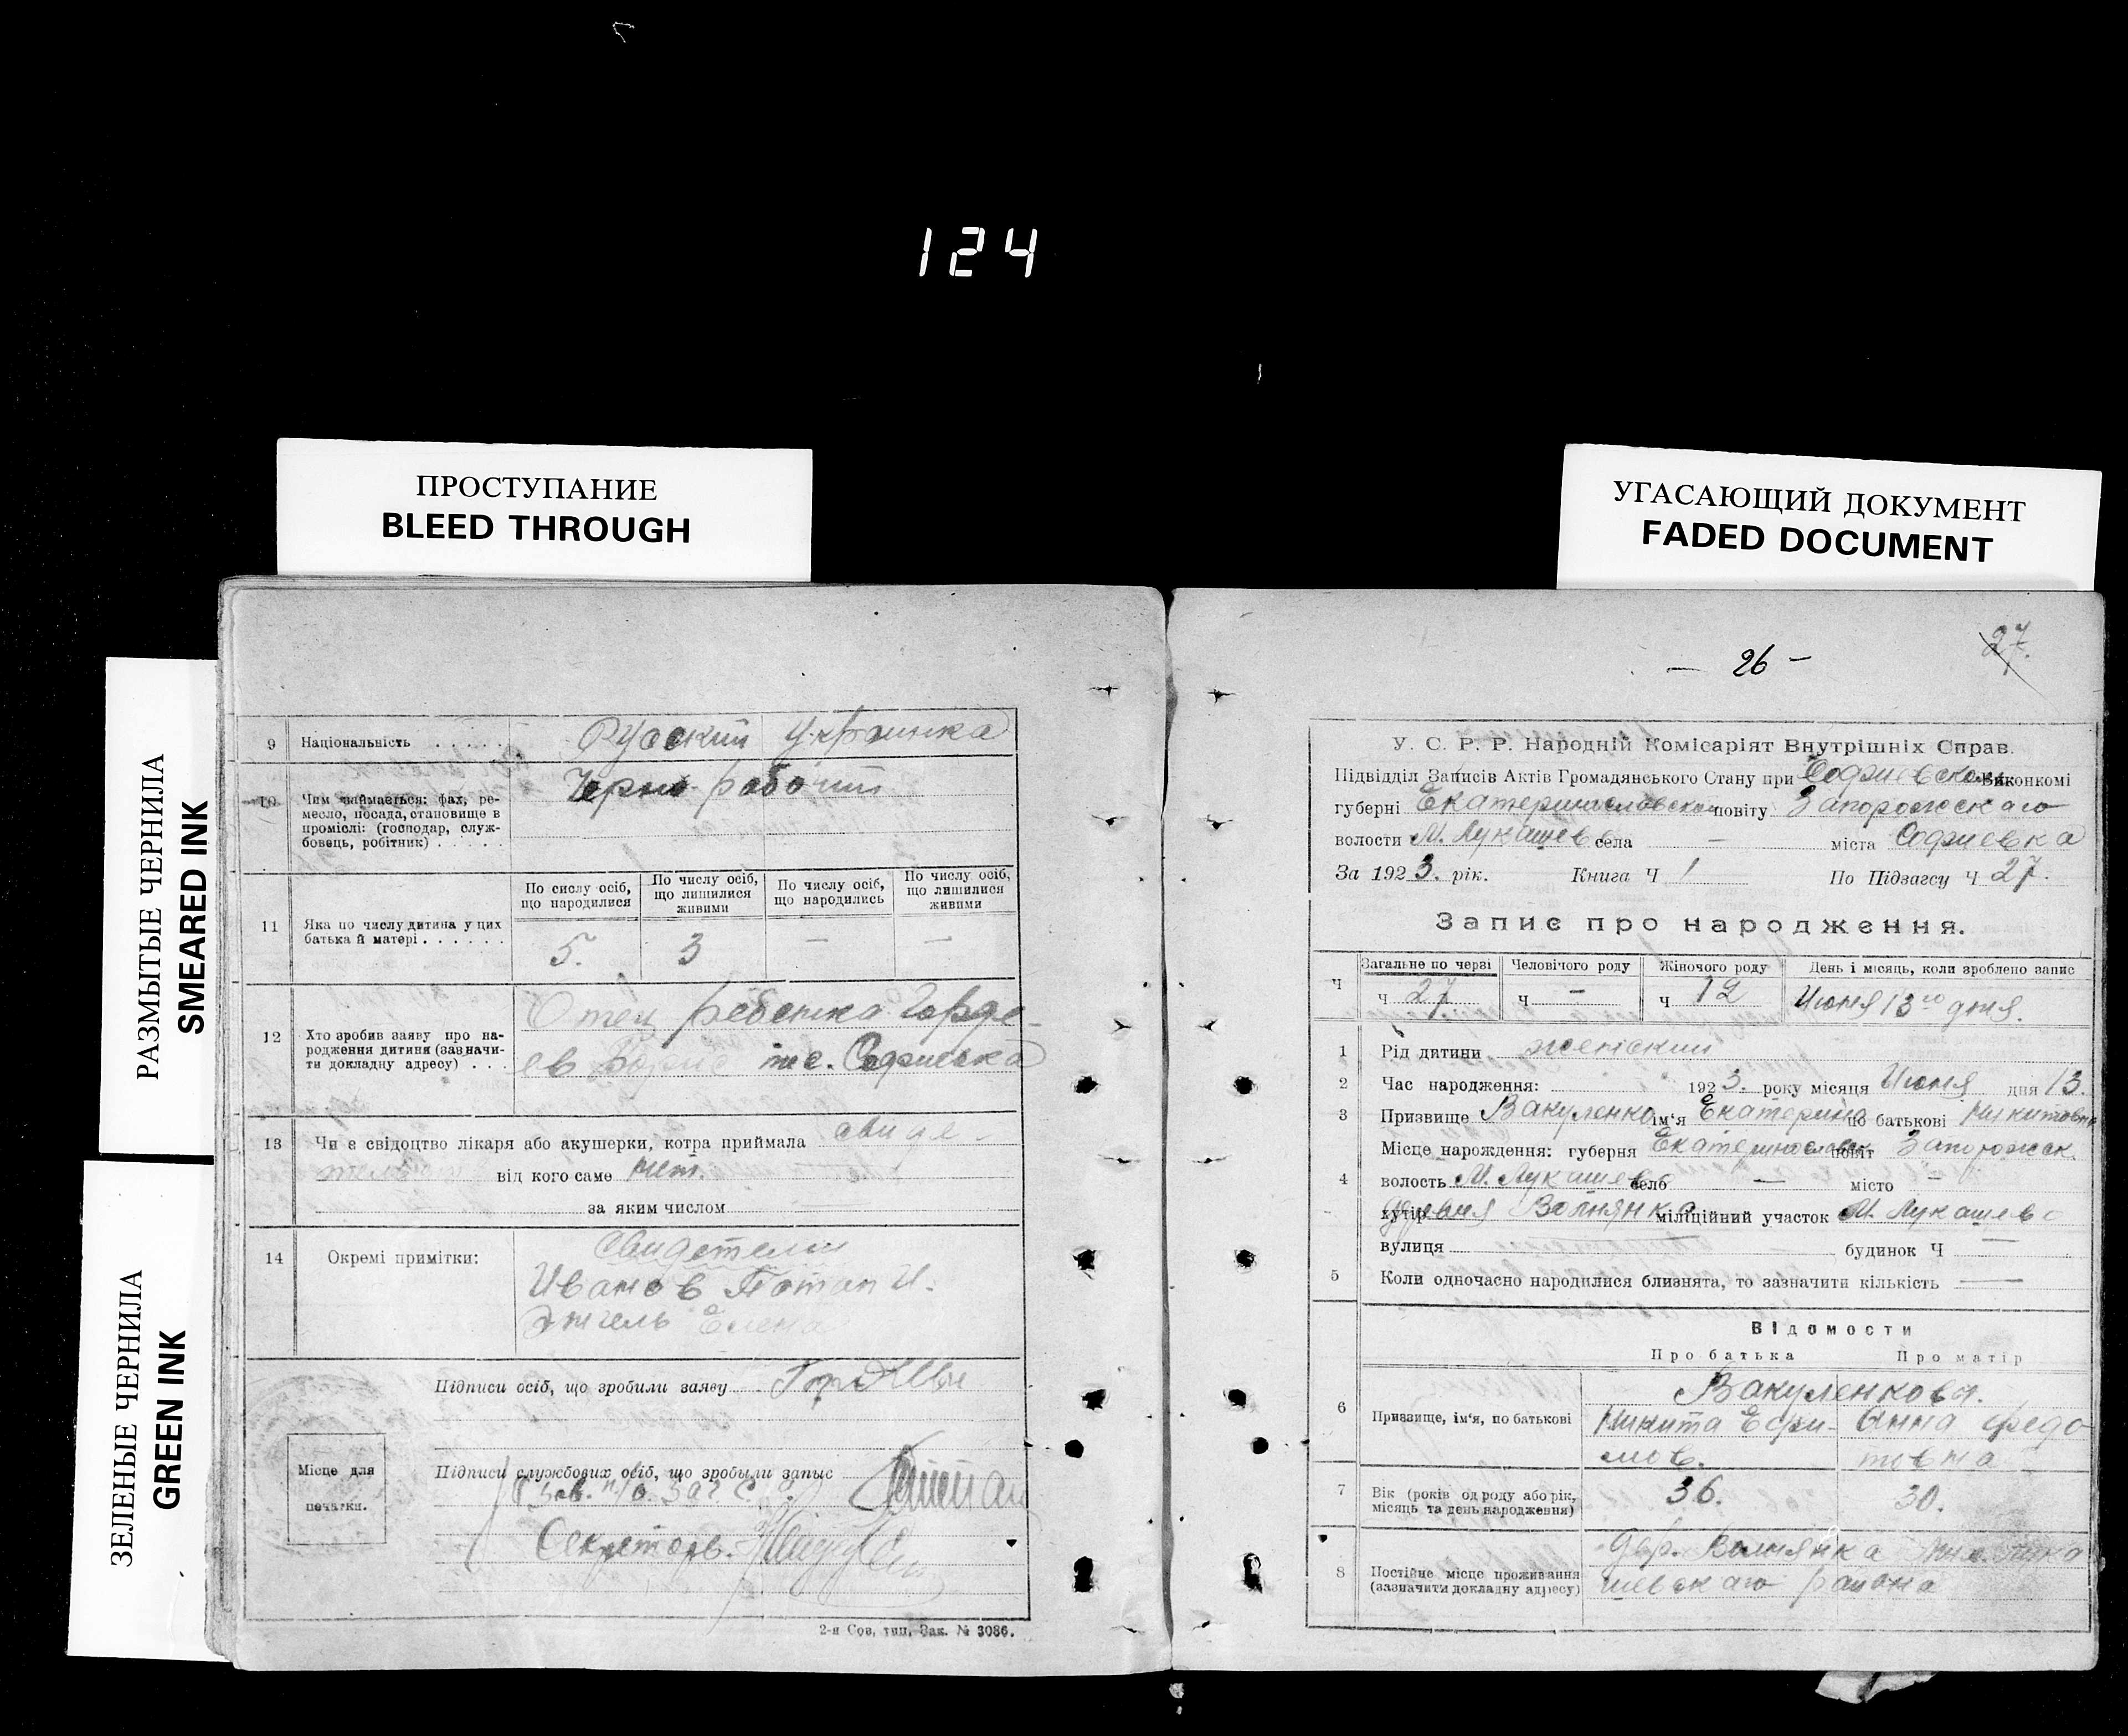 124
ПРОСТУПАНИЕ
BLEED THROUGH
УГАСАЮЩИЙ ДОКУМЕНТ
FADED DOCUMENT
РАЗМЫТЫЕ ЧЕРНИЛА
SMEARED INK
ЗЕЛЕНЫЕ ЧЕРНИЛА
GREEN INK
9 Національність . . . . . Русский Украинка
10 Чим займається: фах, ре-
месло, посада, становище в
промислі: (господар, служ-
бовець, робітник) . . . . .
Черно рабочий
11 Яка по числу дитина у цих
батька й матері . . . . . .
По сислу осіб,
що народилися
По числу осіб,
що лишилися
живими
По числу осіб,
що народились
По числу осіб,
що лишилися
живими
5. 3 — —
12 Хто зробив заяву про на-
родження дитини (зазначи-
ти докладну адресу) . . .
Отец ребенка Горде-
ев Борис Софиевка
13 Чи є свідоцтво лікаря або акушерки, котра приймала свиде-
тельст від кого саме нет.
за яким числом
14 Окремі примітки:
Свидетели
Иванов Потап И.
Энгель Елена
Підписи осіб, що зробили заяву
Місце для
печатки.
Підписи службових осіб, що зробыли запыс
Зав. п/о. Заг. С.
Секретарь.
2-я Сов. тип. Зак. № 3086.
— 26 —
27.
У. С. Р. Р. Народній Комісаріят Внутрішніх Справ.
Підвідділ Записів Актів Громадянського Стану при Софиевском виконкомі
губерні Екатеринославской повіту Запорожскаго
волости М. Лукашев села — міста Софиевка
За 1923. рік. Книга Ч 1 По Підзагсу Ч 27.
Запис про народження.
Ч
Загальне по черзі Человічого роду Жіночого роду День і місяць, коли зроблено запис
ч 27 ч — ч 12 Июня 13го дня.
1 Рід дитини женский
2 Час народження: 1923. року місяця Июня дня 13.
3 Призвище Вакуленко ім'я Екатерина по батькові Никитовна
4 Місце нарождення: губерня Екатеринославск повіт Запорожск.
волость М. Лукашево село — місто —
хутір деревня Волнянка міліційний участок М. Лукашево
вулиця будинок Ч —
5 Коли одночасно народилися близнята, то зазначити кількість —
Відомости
Про батька Про матір
6 Призвище, ім'я, по батькові
Вакуленкова.
Никита Ефи- Анна Федо
мов. товна
7 Вік (років од роду або рік,
місяць та день народження)
36. 30.
8 Постійне місце проживання
(зазначити докладну адресу)
дер. Волнянка Лука
шевскаго района